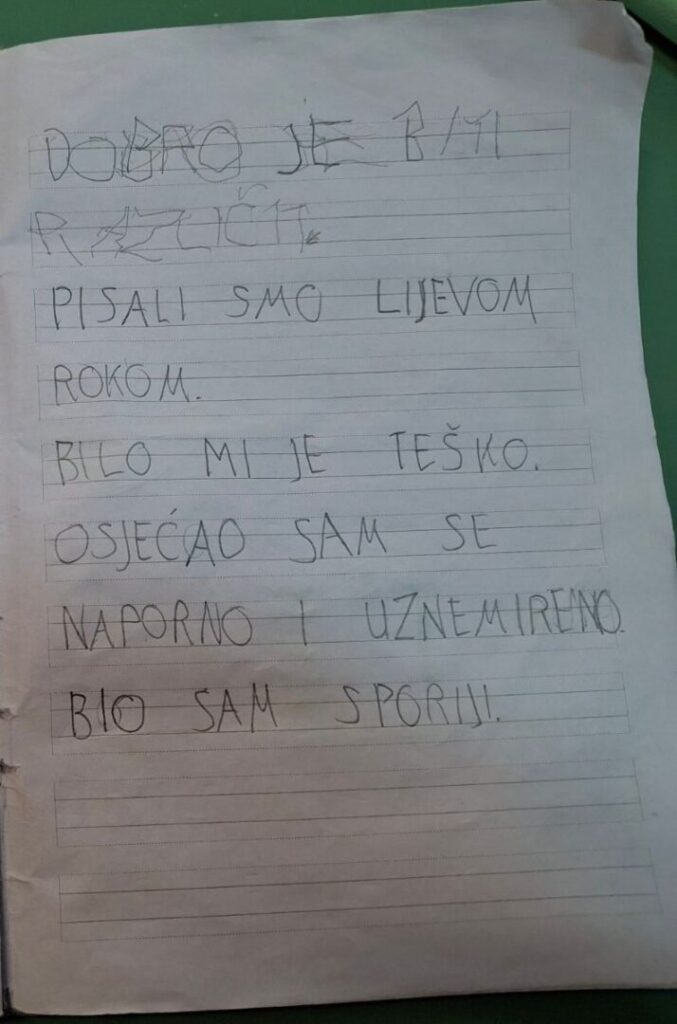 DOBRO JE BITI
RAZLIČIT.
PISALI SMO LIJEVOM
ROKOM.
BILO MI JE TEŠKO.
OSJEĆAO SAM SE
NAPORNO I UZNEMIRENO.
BIO SAM SPORIJI.